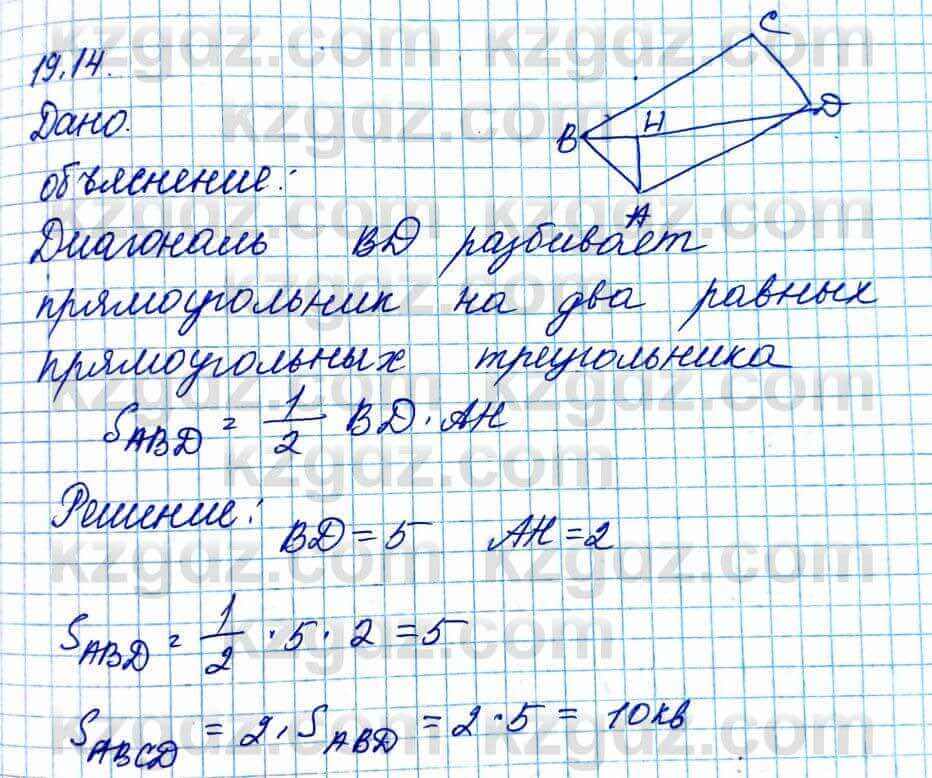 19.14.
Дано.
объяснение:
Диагональ BD разбивает
прямоугольник на два равных
прямоугольных треугольника
S_ABD = 1/2 BD · AH
Решение:
BD = 5 AH = 2
S_ABD = 1/2 · 5 · 2 = 5
S_ABCD = 2 · S_ABD = 2 · 5 = 10кв
C
B
H
D
A
kzgdz.com